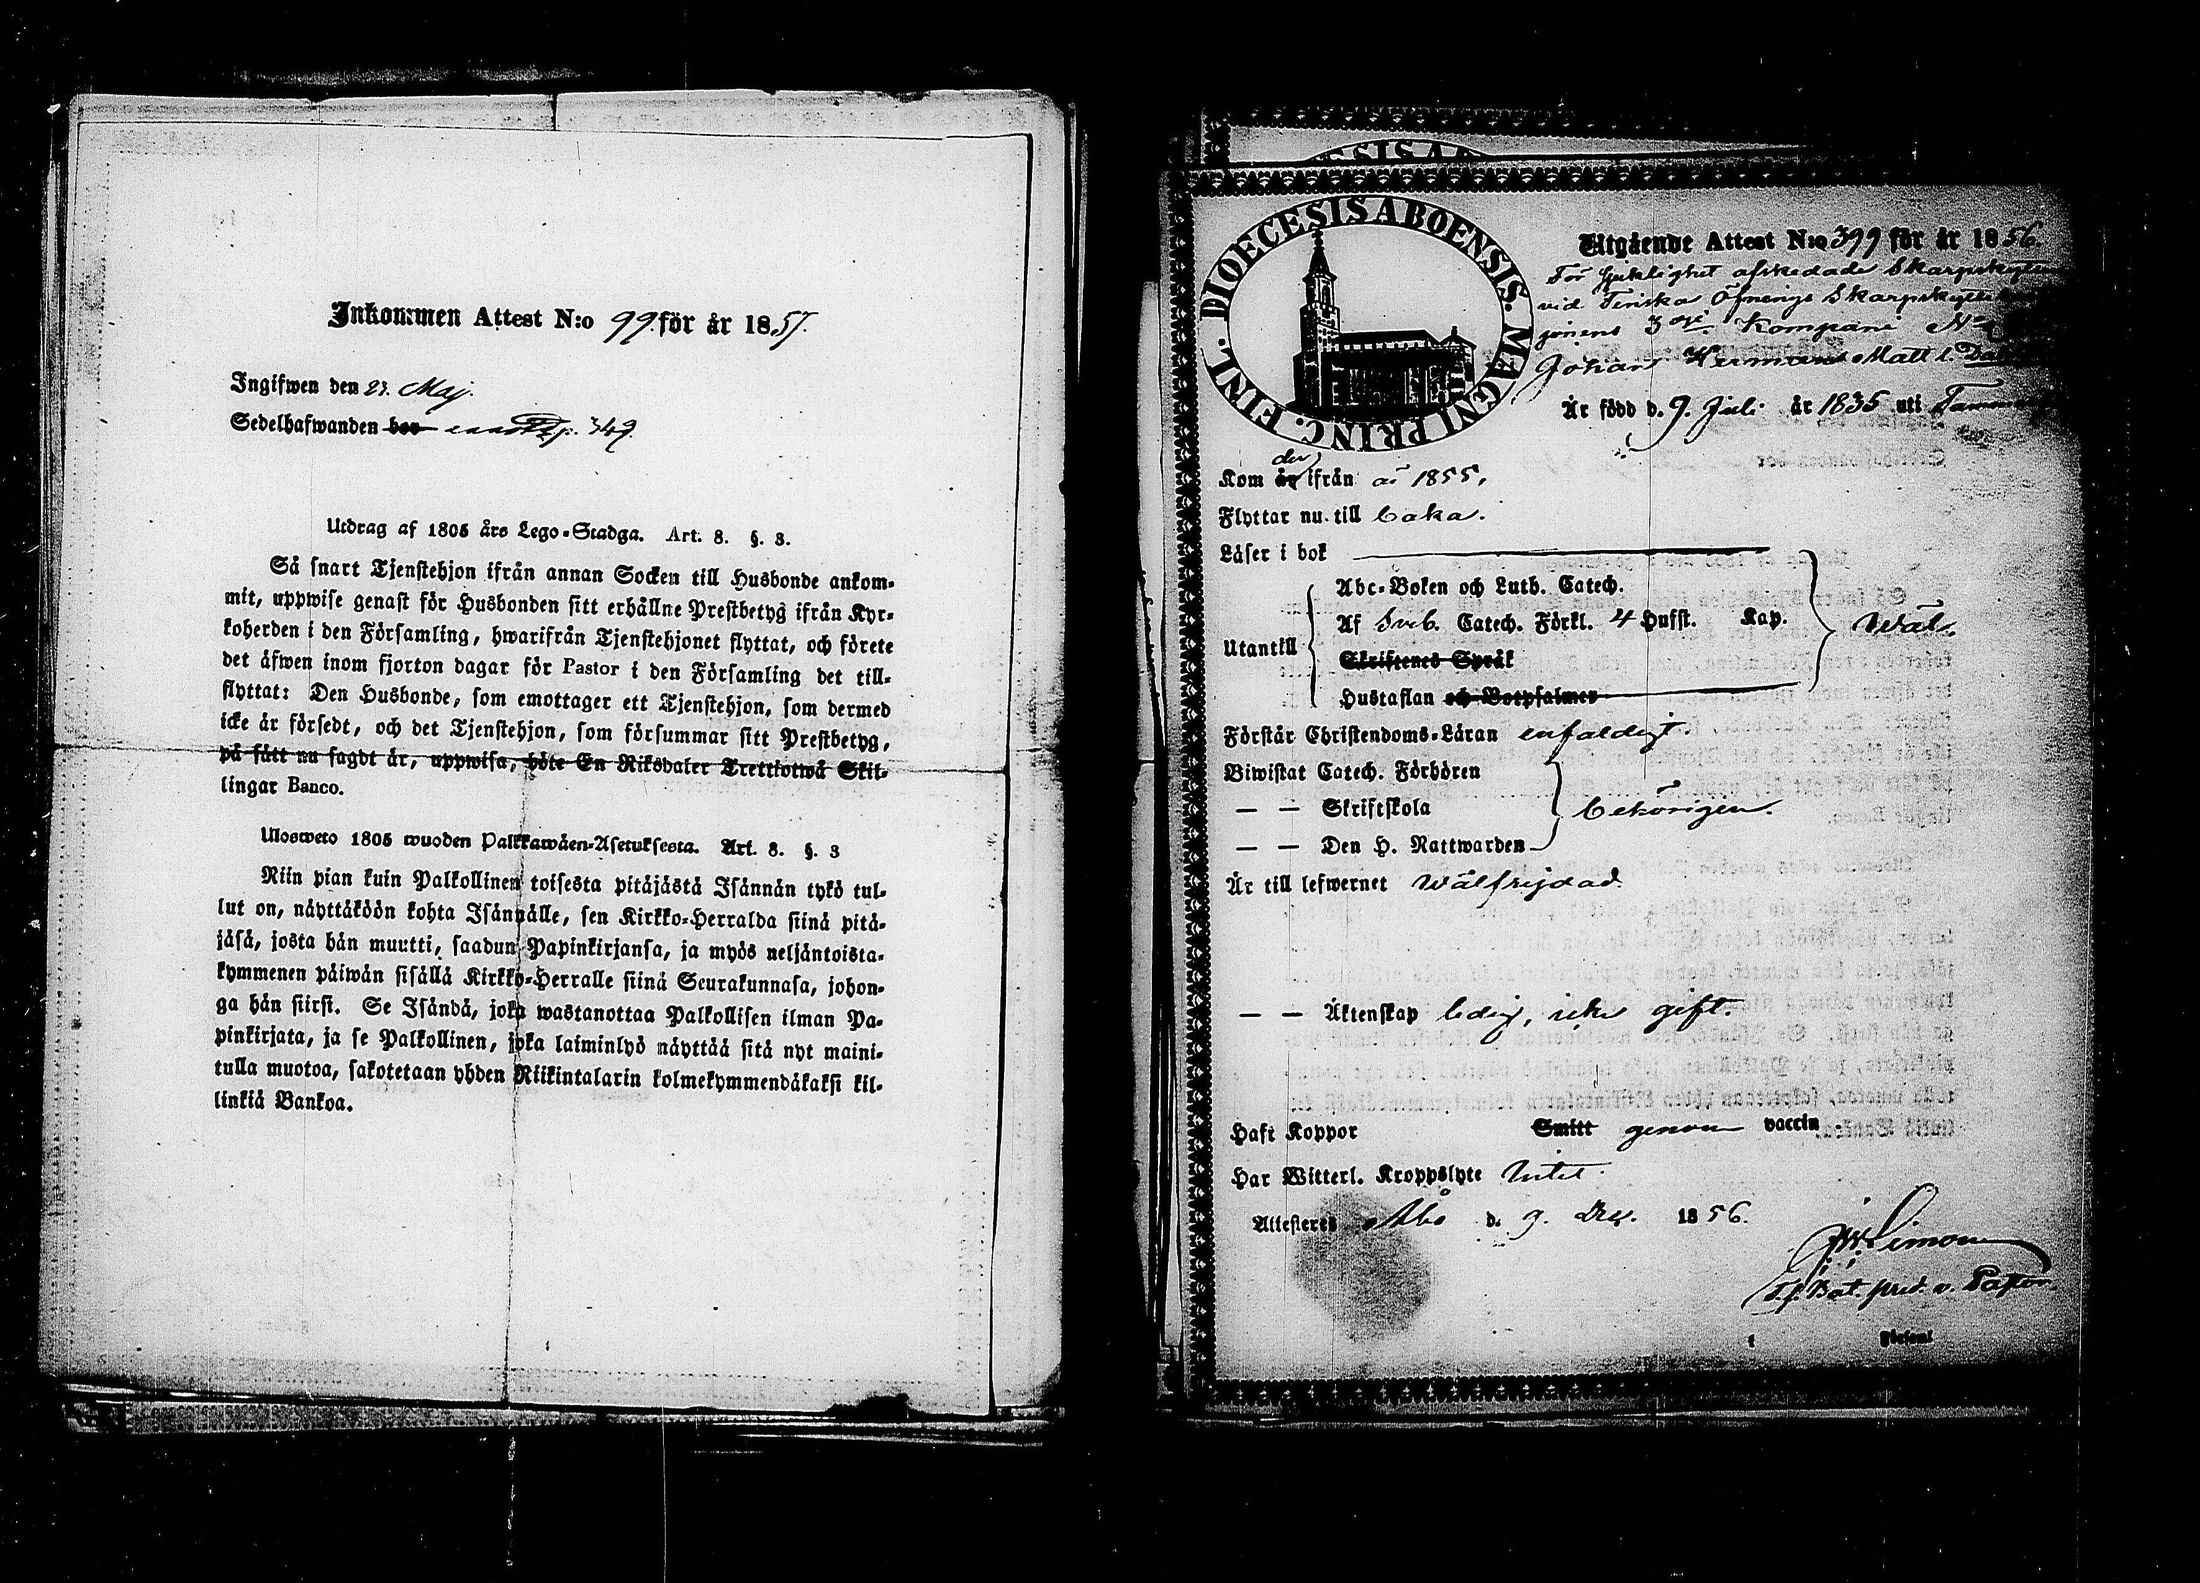 Inkommen Attest N:o 99 för år 1857.
Ingifwen den 23. Maj.
Sedelhafwanden bor 349.
Utdrag af 1805 års Lego-Stadga. Art. 8. §. 3.
Så snart Tjenstehjon ifrån annan Socken till Husbonde ankom-
mit, uppwise genast för Husbonden sitt erhållne Prestbetyg ifrån Kyr-
koherden i den Församling, hwarifrån Tjenstehjonet flyttat, och förete
det äfwen inom fjorton dagar för Pastor i den Församling det till-
flyttat: Den Husbonde, som emottager ett Tjenstehjon, som dermed
icke är försedt, och det Tjenstehjon, som försummar sitt Prestbetyg,
på sätt nu sagdt är, uppwisa, böte En Riksdaler Trettiotwå Skil-
lingar Banco.
Ulosweto 1805 wuoden Palkkawäen-Asetuksesta. Art. 8. §. 3
Niin pian kuin Palkollinen toisesta pitäjästä Isännän tykö tul-
lut on, näyttäköön kohta Isännälle, sen Kirkko-Herralda siinä pitä-
jäsä, josta hän muutti, saadun Papinkirjansa, ja myös neljäntoista-
kymmenen päiwän sisällä Kirkko-Herralle siinä Seurakunnasa, johon-
ga hän siirsi. Se Isändä, joka wastanottaa Palkollisen ilman Pa-
pinkirjata, ja se Palkollinen, joka laiminlyö näyttää sitä nyt maini-
tulla muotoa, sakotetaan yhden Riikintalarin kolmekymmendäkaksi kil-
linkiä Bankoa.
DIOECESIS ABOENSIS. MAGNI PRINC. FINL.
Utgående Attest N:o 399 för år 1856.
För sjuklighet afskedade Skarpskytten
vid Finska Öfnings Skarpskytte
jonens 3dje Kompani N:o
Johan Herman Matts
Är född d. 9. Juli år 1835 uti
Kom är der ifrån år 1855.
Flyttar nu till
Läser i bok
Utantill
Abc-Boken och Luth. Catech.
Af Sveb. Catech. Förkl. 4 Hufst. Kap.
Wäl.
Skriftenes Språk
Hustaflan och Botpsalmer
Förstår Christendoms-Läran enfaldigt.
Biwistat Catech. Förhören
— — Skriftskola
behörigen.
— — Den H. Nattwarden
Är till lefwernet wälfrejdad.
— — Äktenskap ledig, icke gift.
Haft Koppor Smitt genom vaccin
Har Witterl. Kroppslyte Intet.
Attesteres Åbo d. 9. Dec. 1856.
T.f. Bat. pred. o. Pastor.
Församl